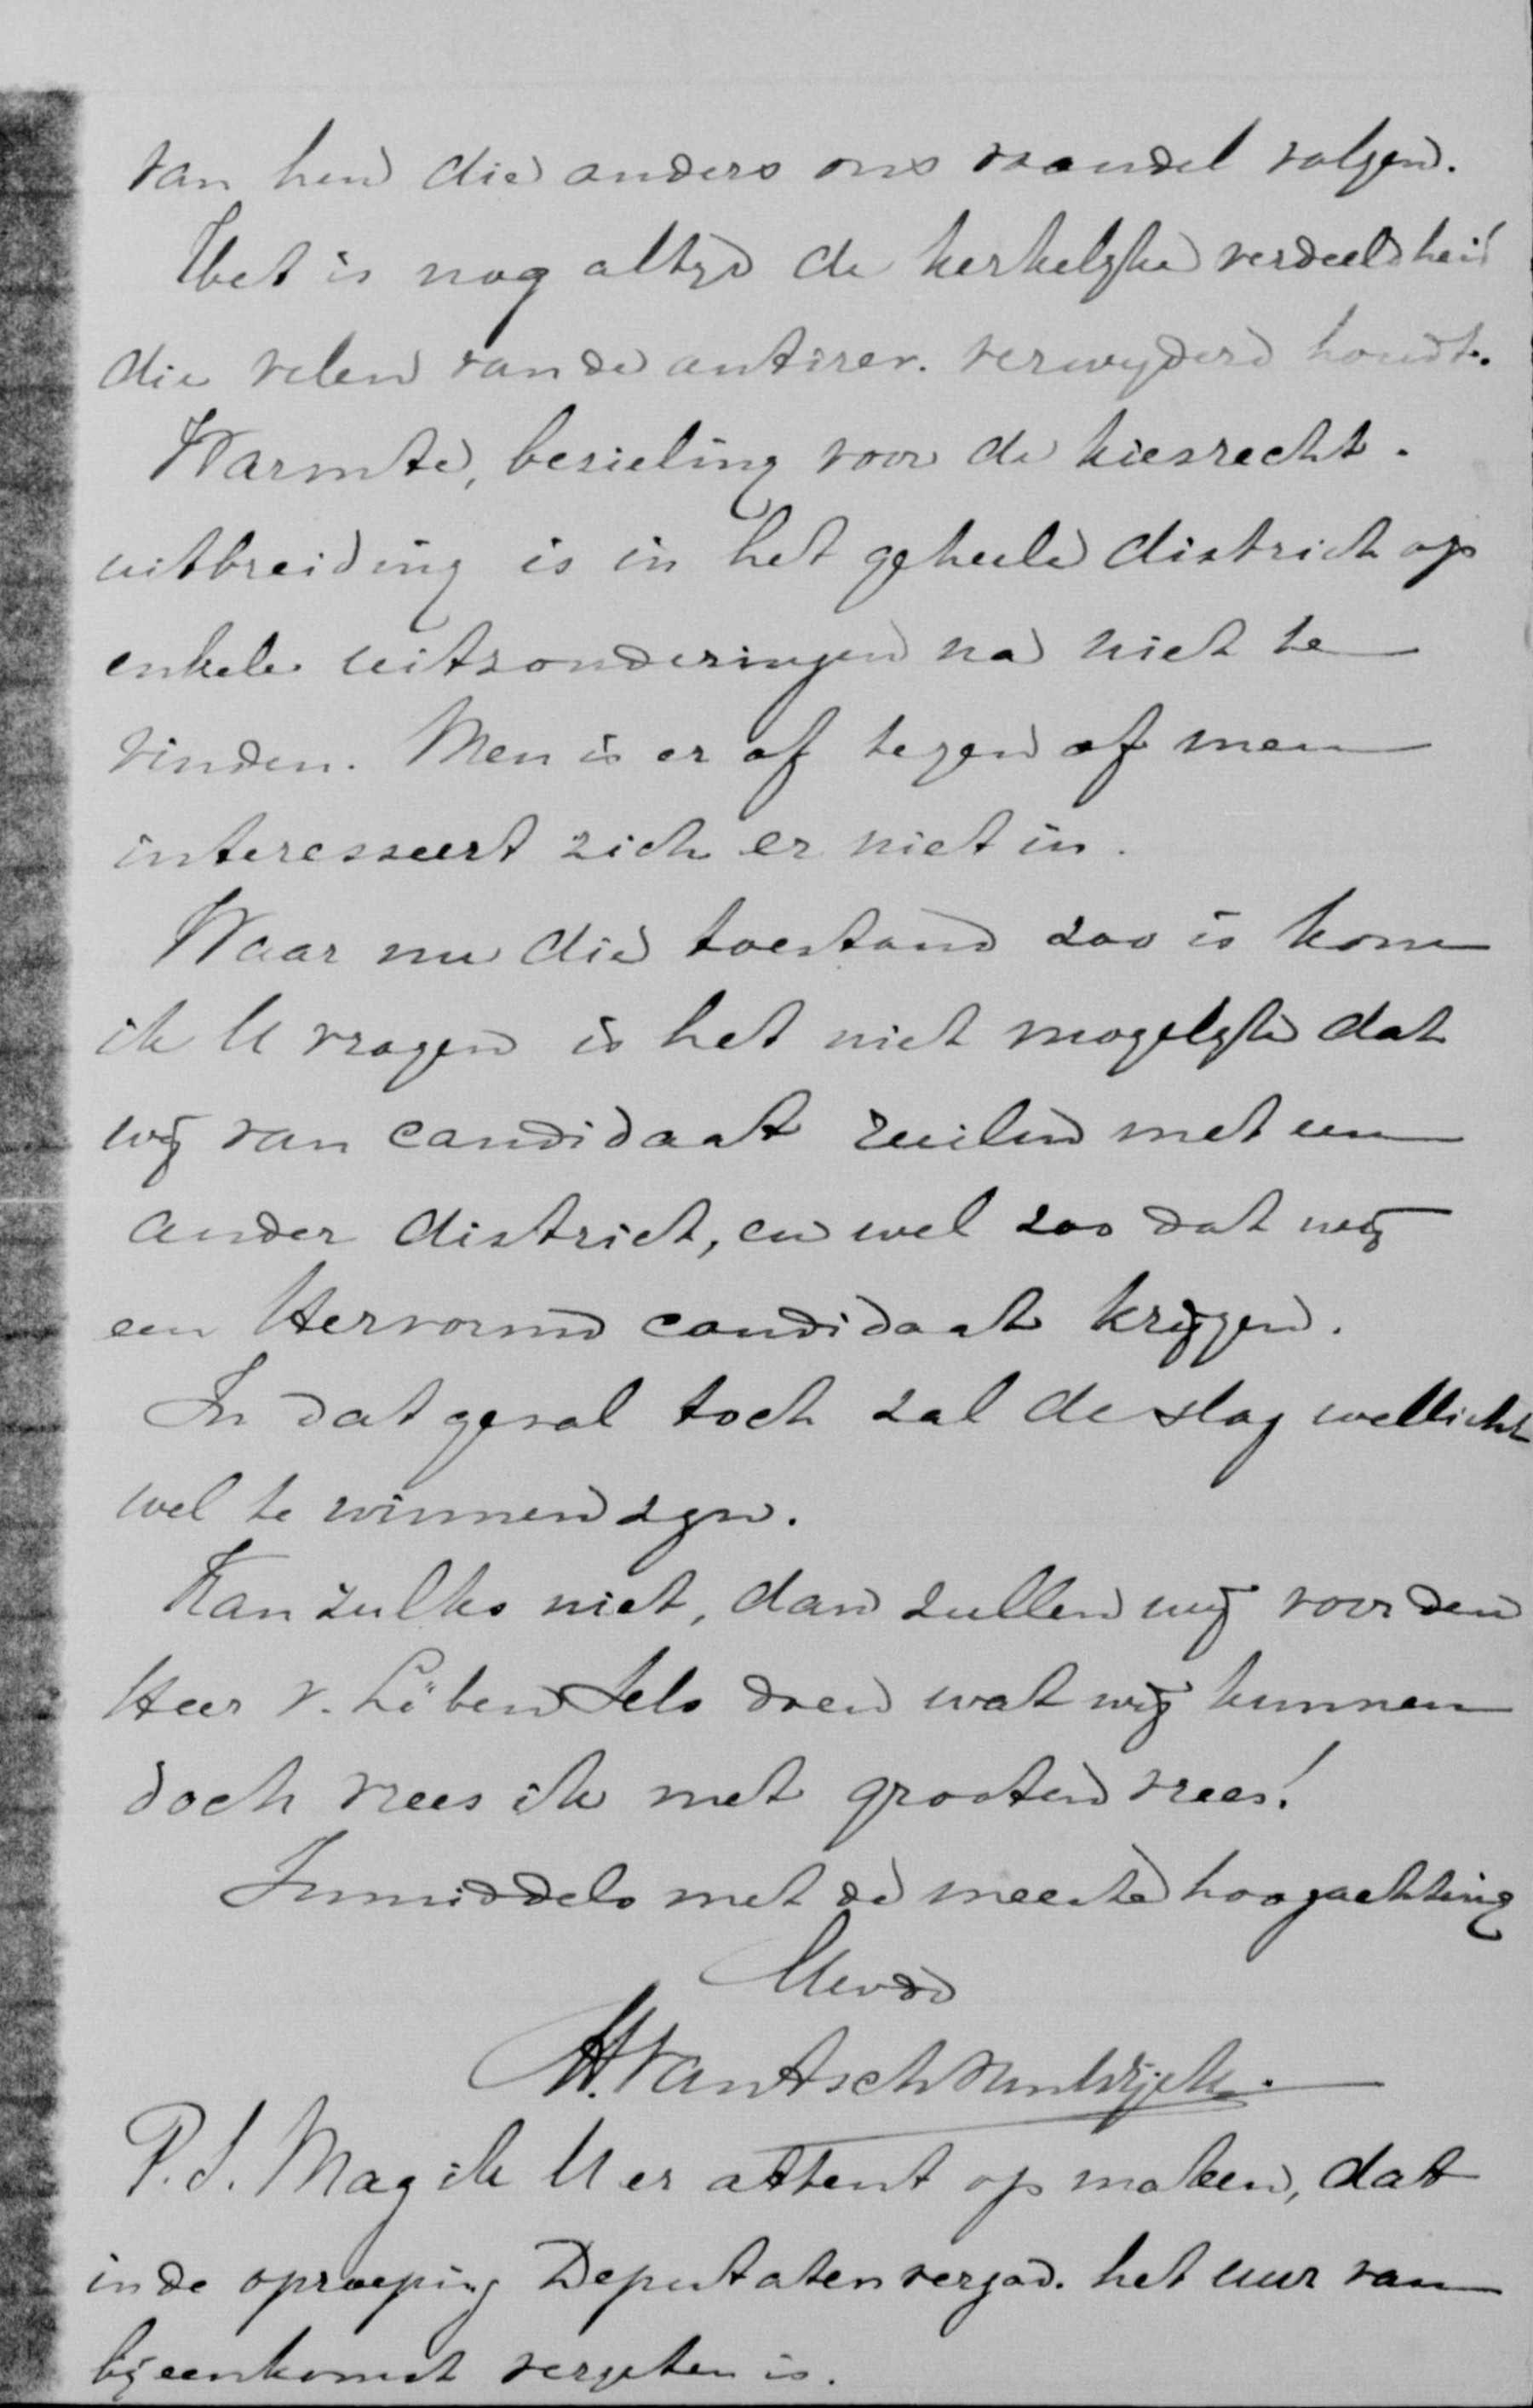 van hen die anders ons vaandel volgen.
Het is nog altijd de kerkelijke verdeeldheid
die velen van de antirev. verwijderd houdt.
Warmte, bezieling voor de kiesrecht-
uitbreiding is in het geheele district op
enkele uitzonderingen na niet te
vinden. Men is er of tegen of men
interesseert zich er niet in.
Waar nu die toestand zoo is kom
ik U vragen is het niet mogelijk dat
wij van candidaat ruilen met een
ander district, en wel zoo dat wij
een Hervormd candidaat krijgen.
In dat geval toch zal de slag wellicht
wel te winnen zijn.
Kan zulks niet, dan zullen wij voor den
Heer v. Löben Sels doen wat wij kunnen
doch vrees ik met grooten vrees!
Inmiddels met de meeste hoogachting
Uwdd
H. van Asch van Wijck.
P.S. Mag ik U er attent op maken, dat
in de oproeping Deputatenvergad. het uur van
bijeenkomst vergeten is.